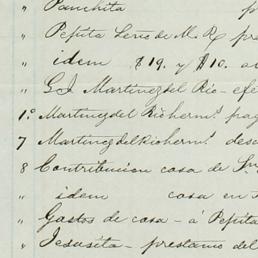 " Panchita p
" Pepita Serie de M. R. pre
" idem $19. y $10. a
" G J Martinez del Rio - efe
1.º Martinez del Rio herm.s pag
7 Martinez del Rio herm.s desc
8 Contribucion casa de S.n
" idem casa en
" Gastos de casa - á Pepita
" Jesusita - prestamo del